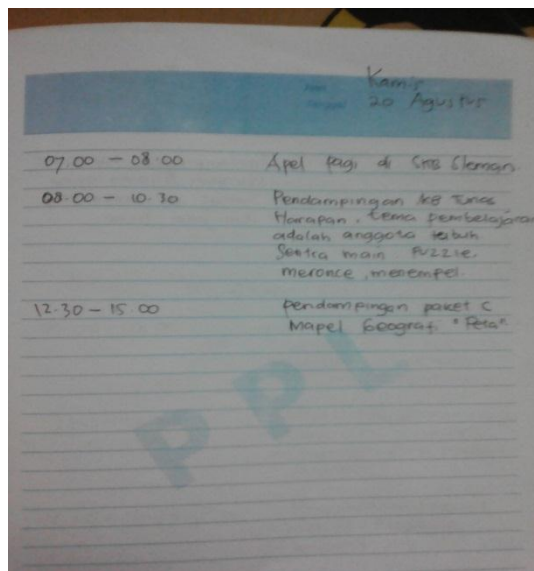 Kamis
20 Agustus
07.00 – 08.00 Apel pagi di SKB Sleman
08.00 – 10.30 Pendampingan KB Tunas
Harapan, tema pembelajaran
adalah anggota tubuh
Sentra main Puzzle,
meronce, menempel.
12.30 – 15.00 Pendampingan paket C
Mapel Geografi "Peta"
PPL